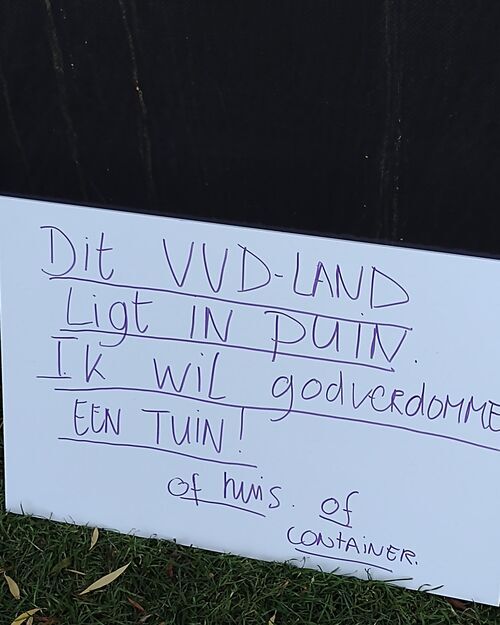 Dit VVD-LAND
Ligt IN PUIN.
Ik wil godverdomme
EEN TUIN!
of huis. of
CONTAINER.